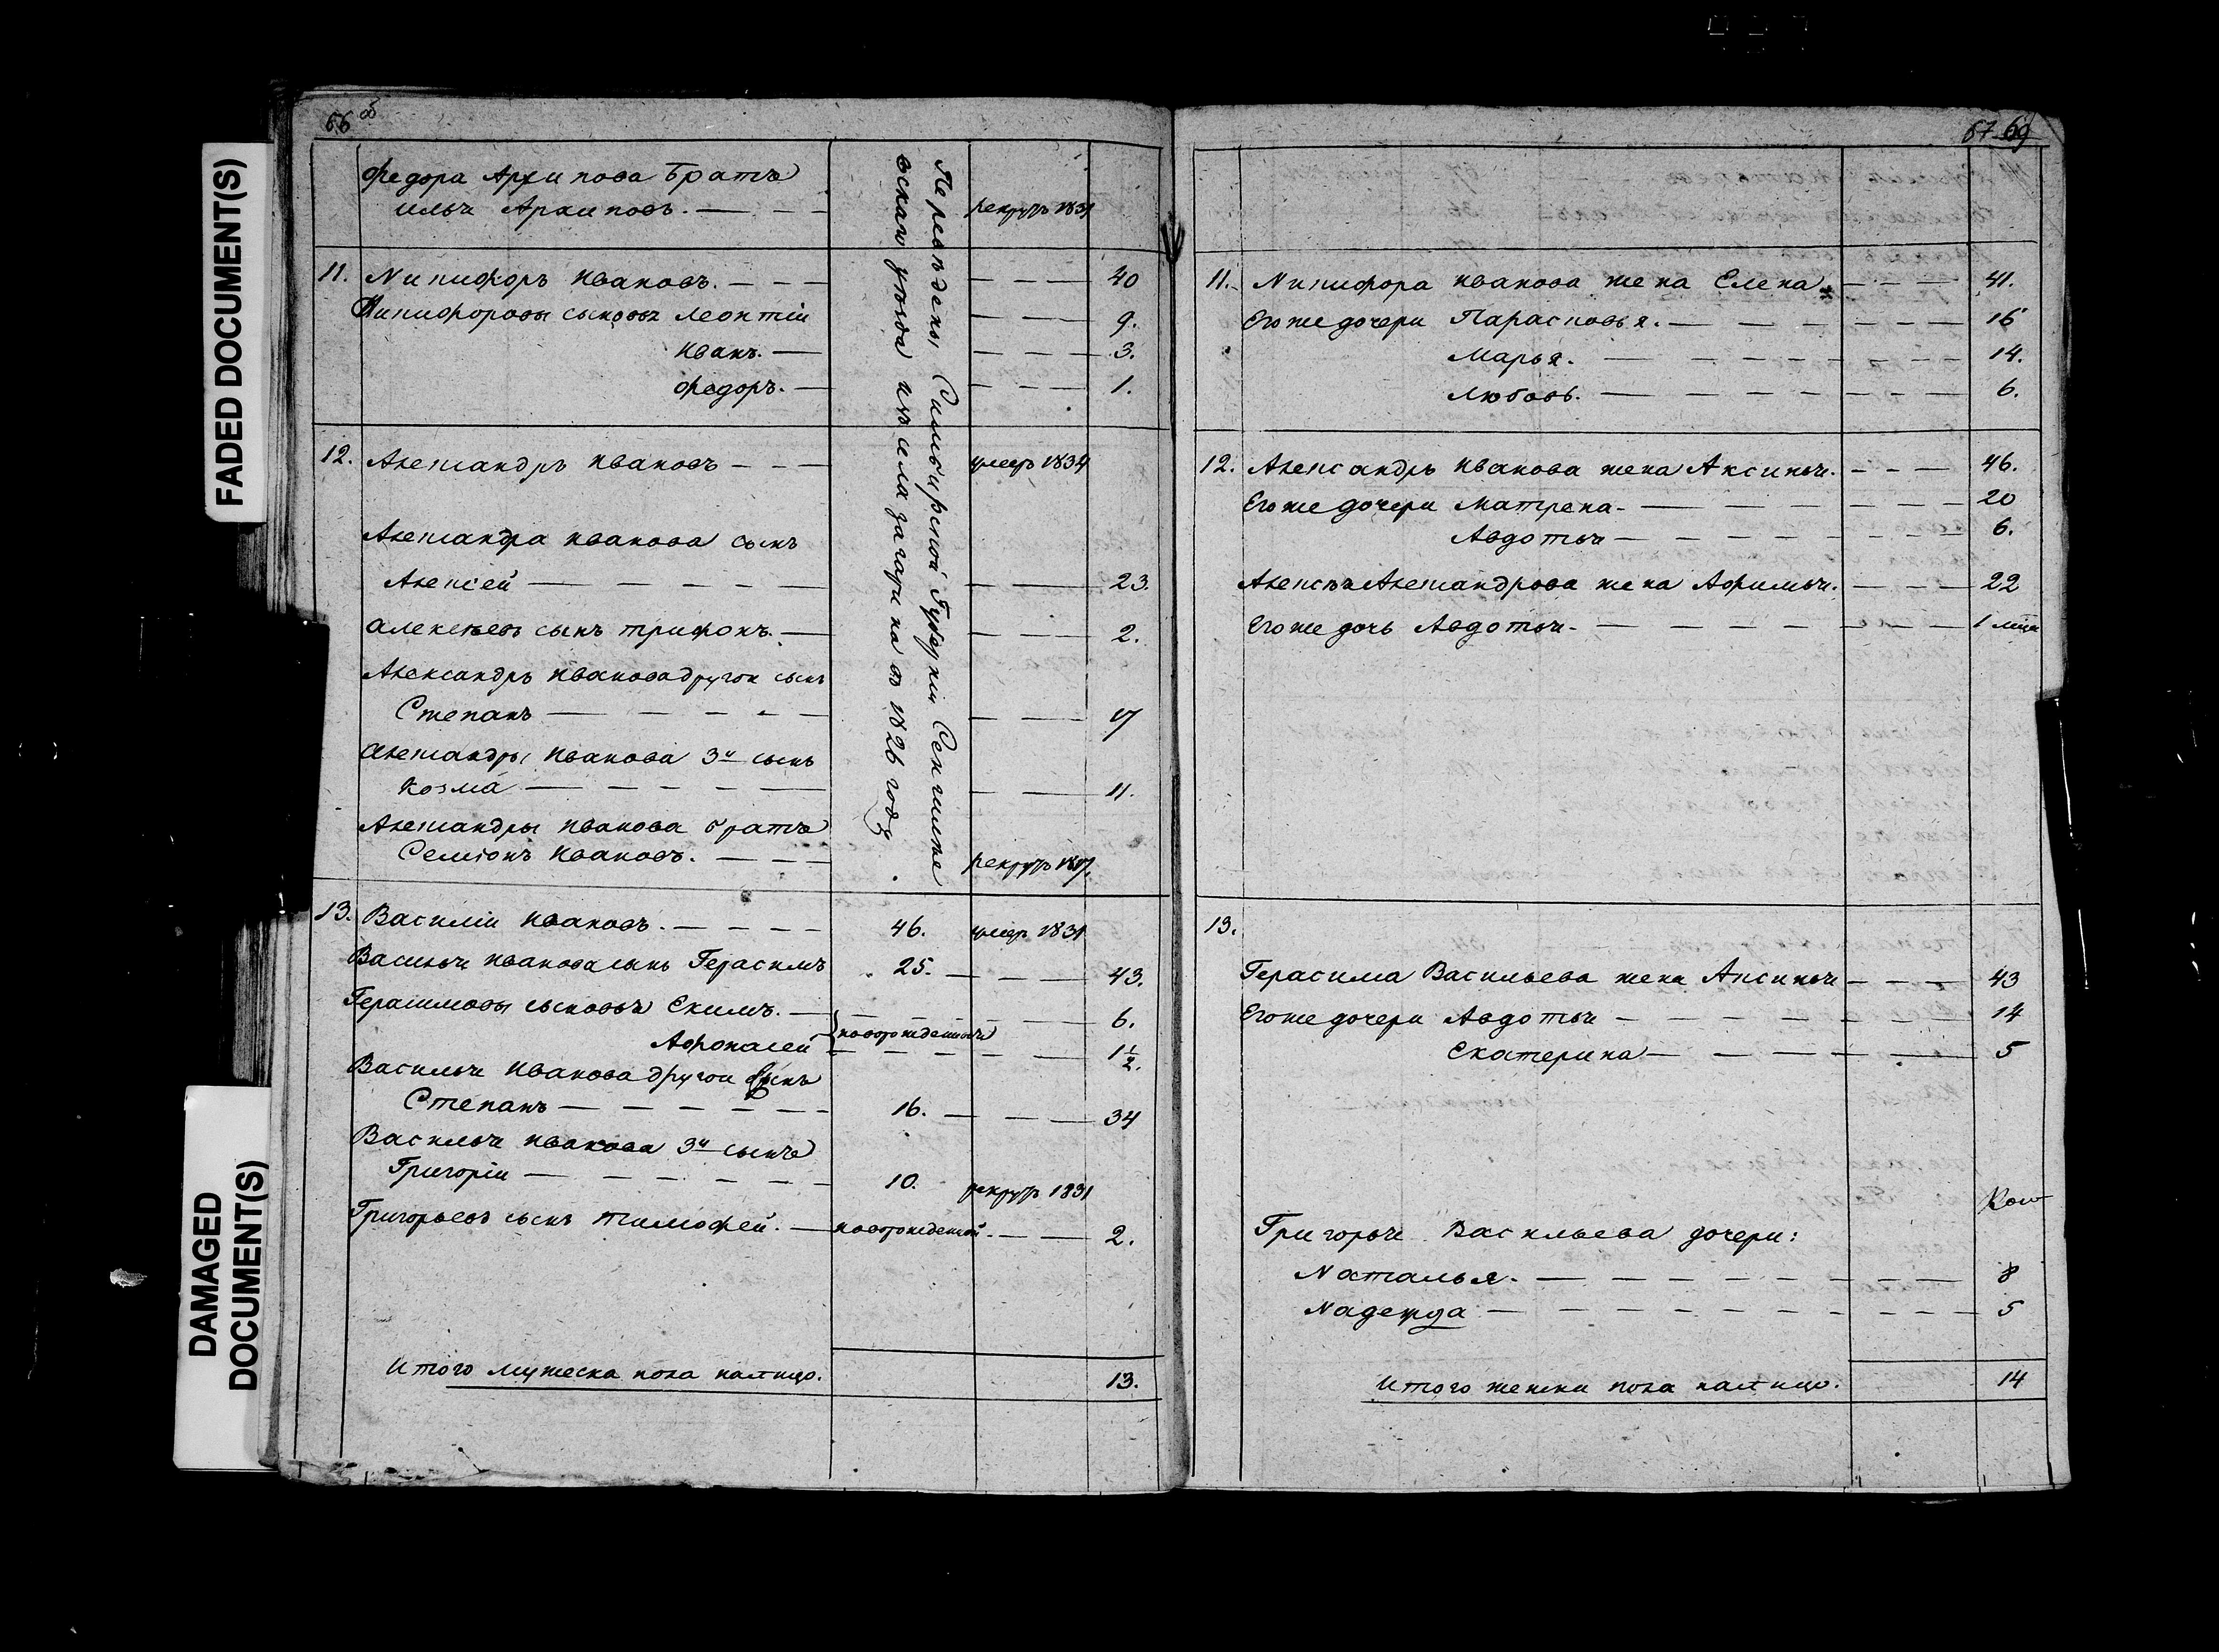 FADED DOCUMENT(S)
DAMAGED
DOCUMENT(S)
66 об
Федора Архипова братъ
Илья Архиповъ. — — —
рекрутъ 1831
Переведены Симбирской Губерніи Сенгилѣе
вскаго уѣзда изъ села Загарина въ 1826 году
11. Никифоръ Ивановъ. — — — 40
Никифоровы сыновья Леонтіи — — — 9.
Иванъ. — — — — 3.
Федоръ. — — — — 1.
12. Александръ Ивановъ — — — умеръ 1834
Александра Иванова сынъ
Алексей — — — — 23.
Алексѣевъ сынъ Трифонъ. — — — 2.
Александръ Иванова другои сынъ
Степанъ — — — — — 17
Александры Иванова 3й сынъ
Козма — — — — — 11.
Александры Иванова братъ
Семіонъ Ивановъ. — — — рекрутъ
13. Василіи Ивановъ. — — — — 46. умер 1831
Василья Иванова сынъ Герасимъ 25. — — — 43.
Герасимовы сыновья Екимъ. — — — — 6.
новорожденныя
Афонасеи — — — — — 1 1/2.
Василья Иванова другои сынъ
Степанъ — — — — — — 16. — — — 34
Василья Иванова 3й сынъ
Григоріи — — — — — — 10. рекрутъ 1831
Григорьевъ сынъ Тимофей. — новорожденной. — — 2.
Итого мужеска пола налицо. 13.
67 69
11. Никифора Иванова жена Елена. — — — 41.
Его же дочери Парасковья. — — — — — — 16
Марья. — — — — — — 14.
Любовь. — — — — — — 6.
12. Александръ Иванова жена Аксинья. — — — 46.
Его же дочери Матрена — — — — — — 20
Авдотья — — — — — — 6.
Алексѣя Александрова жена Афимья. — — — 22
Его же дочь Авдотья — — — — — — 1
13.
Герасима Васильева жена Аксинья — — — 43
Его же дочери Авдотья — — — — — — 14
Екатерина — — — — — 5
Григорья Васильева дочери:
Наталья. — — — — — — — 8
Надежда — — — — — — — 5
Итого женска пола налицо. 14